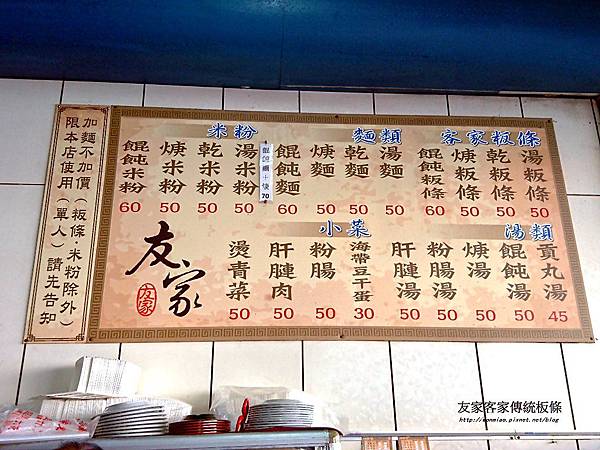 客家板條
湯板條 50
乾板條 50
焿板條 50
餛飩板條 60
麵類
湯麵 50
乾麵 50
焿麵 50
餛飩麵 60
米粉
湯米粉 50
乾米粉 50
焿米粉 50
餛飩米粉 60
湯類
貢丸湯 45
餛飩湯 50
焿湯 50
粉腸湯 50
肝腱湯 50
小菜
海帶豆干蛋 30
粉腸 50
肝腱肉 50
燙青菜 50
友家
友家
加麵不加價(板條·米粉除外)
限本店使用(單人)請先告知
友家客家傳統板條